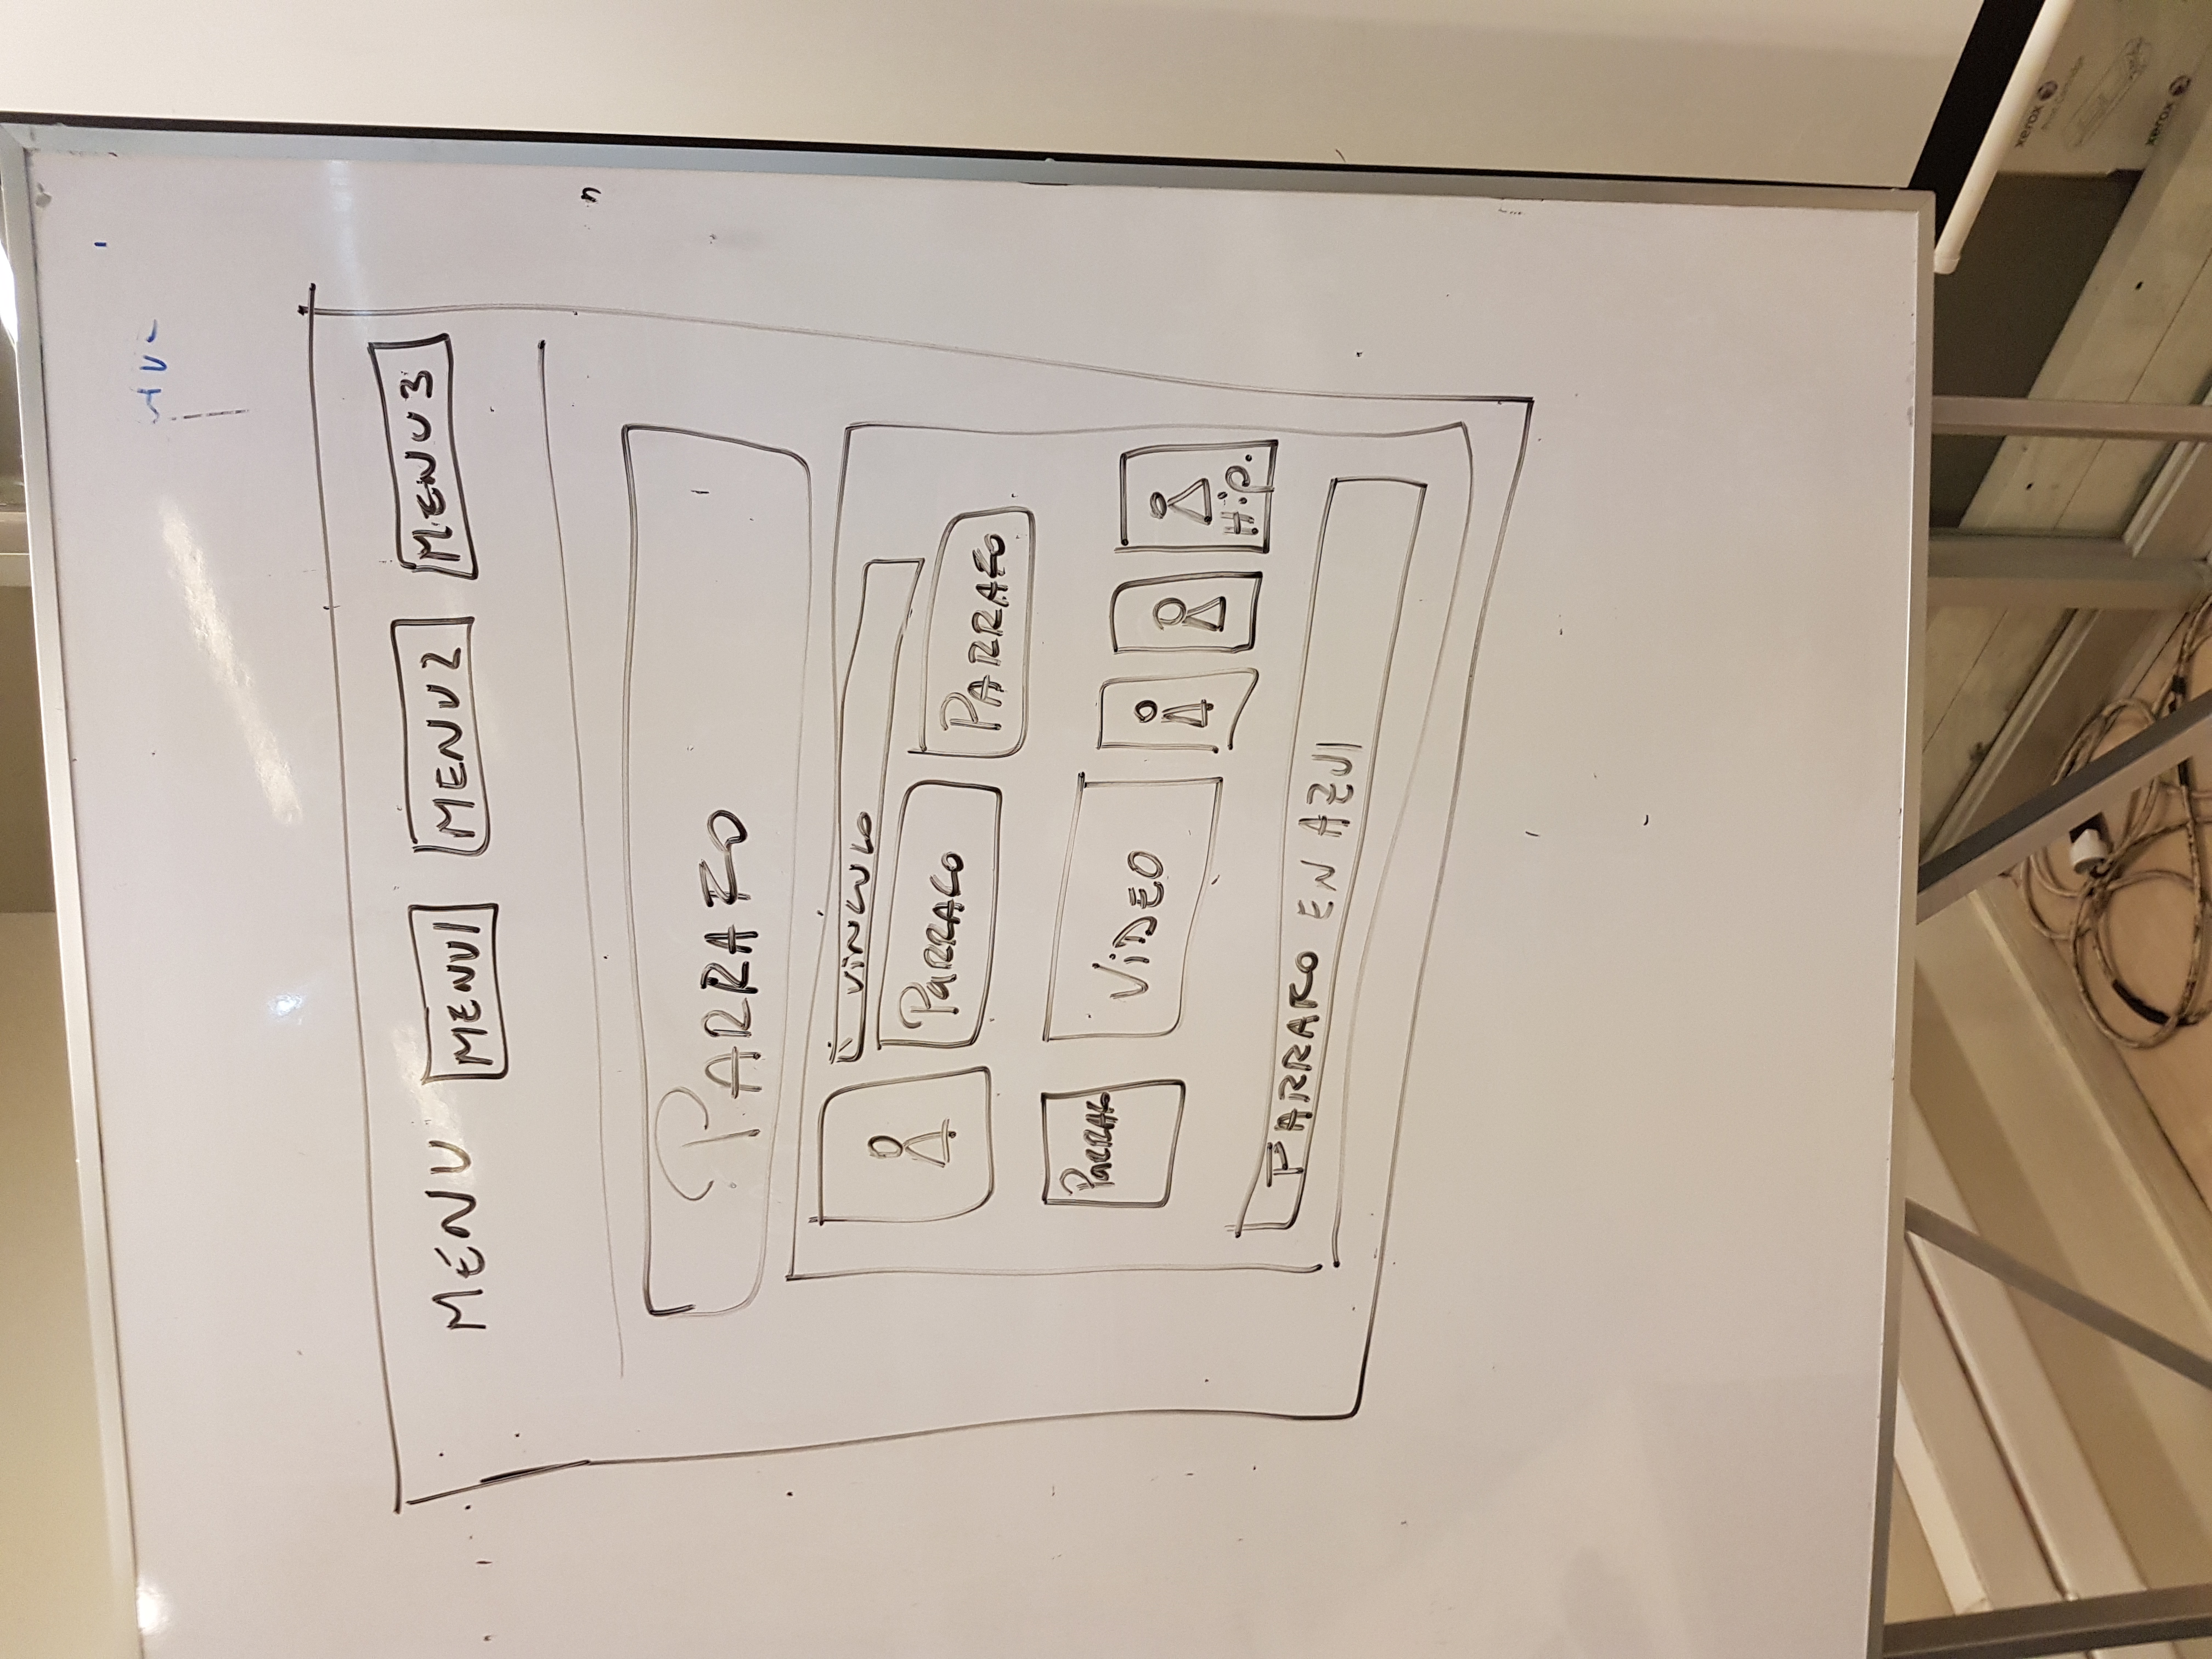 MENU MENU1 MENU2 MENU3
PARRAFO
VINCULO
PARRAFO
PARRAFO
PARRAF
VIDEO
H.P.
PARRAFO EN AZUl
xerox
xerox